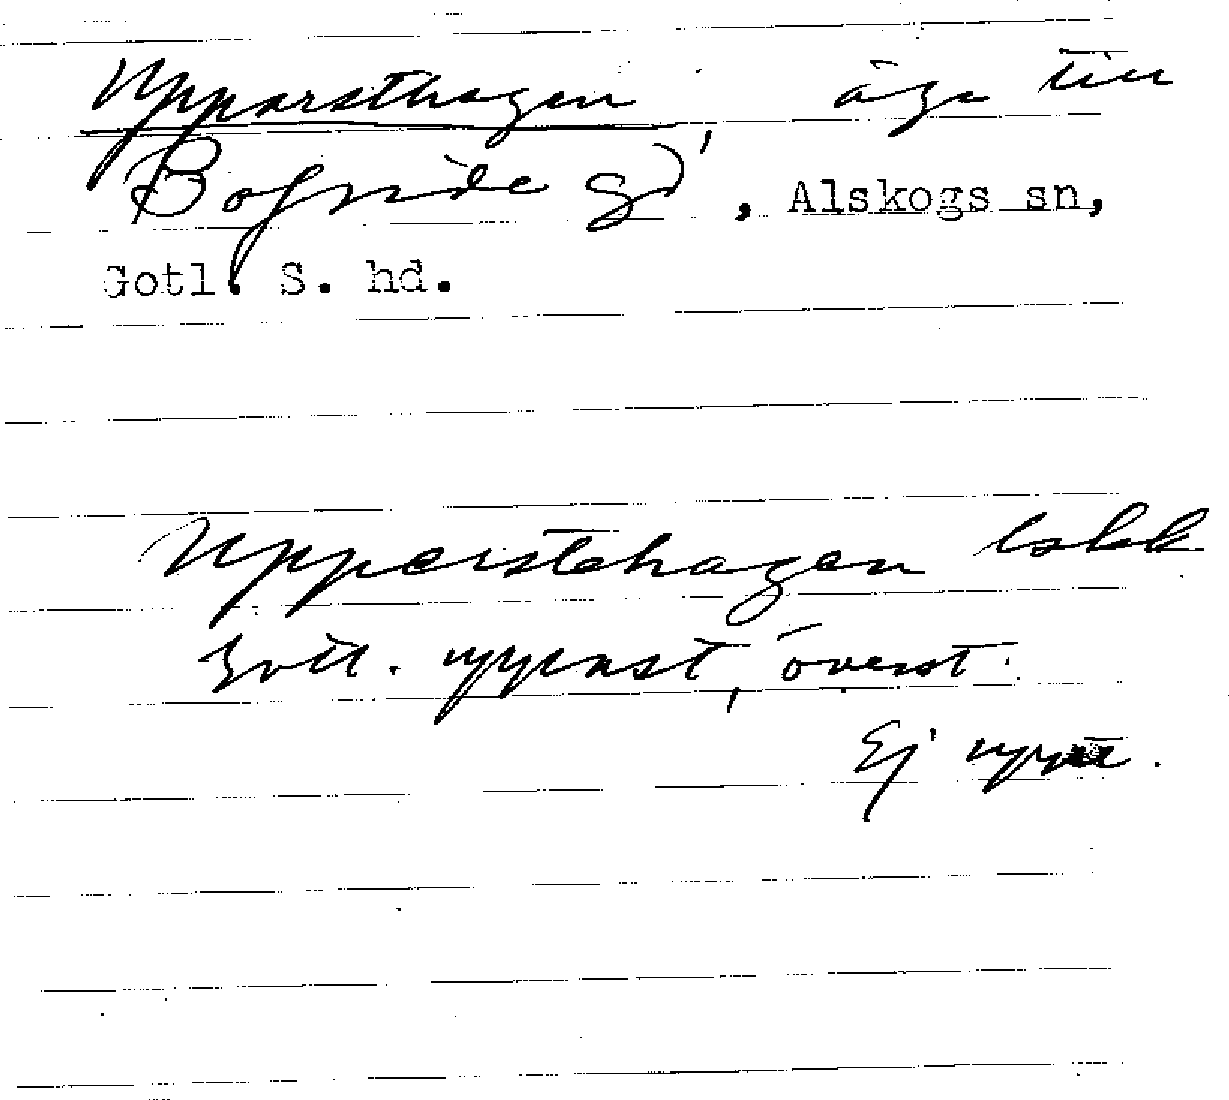 Upparsthagen, äga till
Bofride gd, Alskogs sn,
Gotl. S. hd.
Upperstehagen lskk
Gotl. upparst, överst.
Ej uppt.